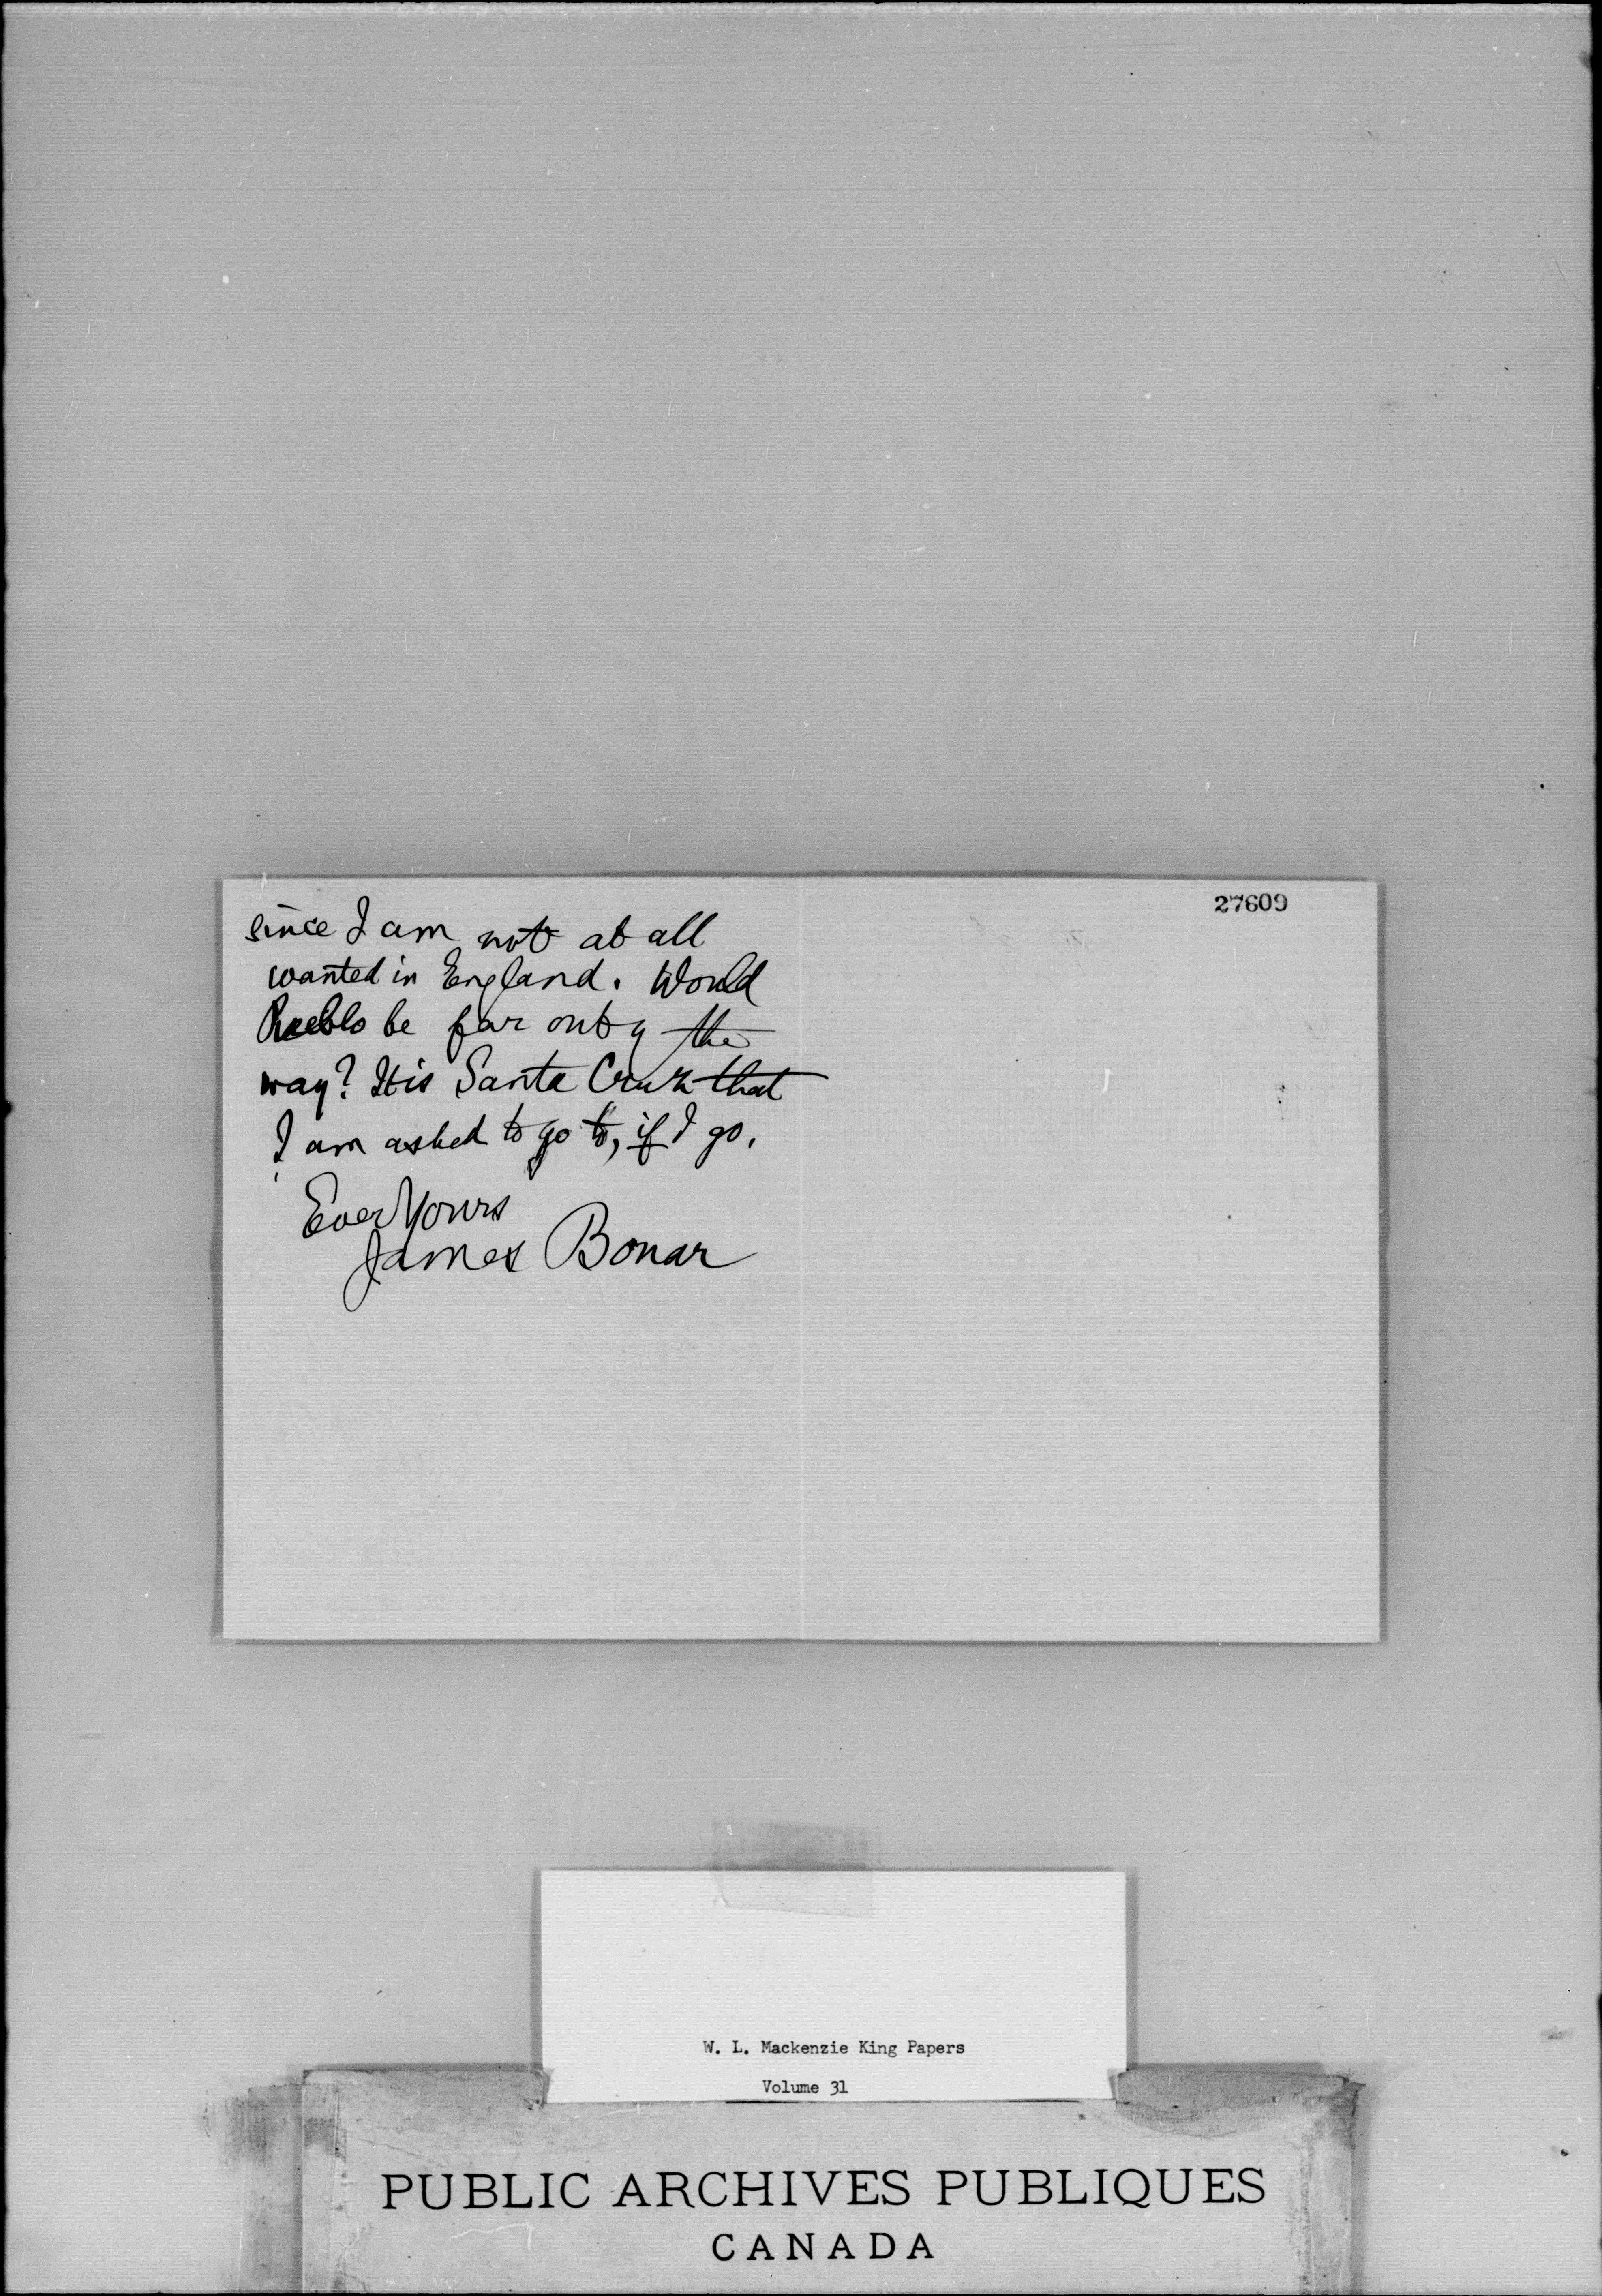 27609
since I am not at all
wanted in England. Would
Pueblo be far out of the
way? It is Santa Cruz that
I am asked to go to, if I go.
Ever Yours
James Bonar
W. L. Mackenzie King Papers
Volume 31
PUBLIC ARCHIVES PUBLIQUES
CANADA